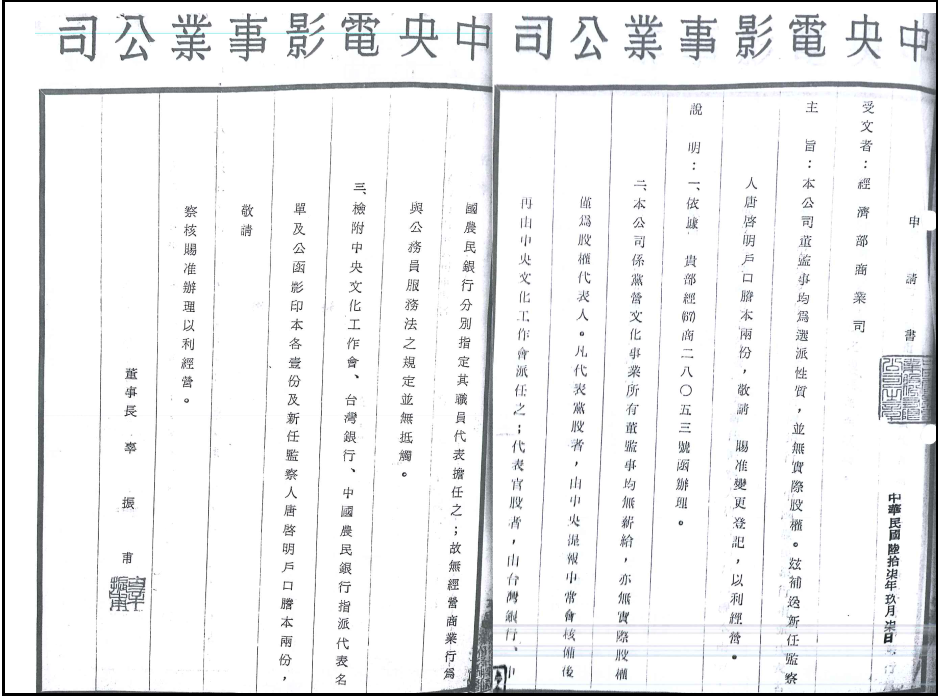 中央電影事業公司
申請書
中華民國陸拾柒年玖月柒日
受文者：經濟部商業司
主　旨：本公司董監事均爲選派性質，並無實際股權。茲補送新任監察
人唐啓明戶口謄本兩份，敬請　賜准變更登記，以利經營。
說　明：一、依據　貴部經(67)商二八〇五三號函辦理。
二、本公司係黨營文化事業所有董監事均無薪給，亦無實際股權
僅爲股權代表人。凡代表黨股者，由中央提報中常會核備後
再由中央文化工作會派任之；代表官股者，由台灣銀行、中
中央電影事業公司
國農民銀行分別指定其職員代表擔任之；故無經營商業行爲
與公務員服務法之規定並無抵觸。
三、檢附中央文化工作會、台灣銀行、中國農民銀行指派代表名
單及公函影印本各壹份及新任監察人唐啓明戶口謄本兩份，
敬請
察核賜准辦理以利經營。
董事長　辜　振　甫